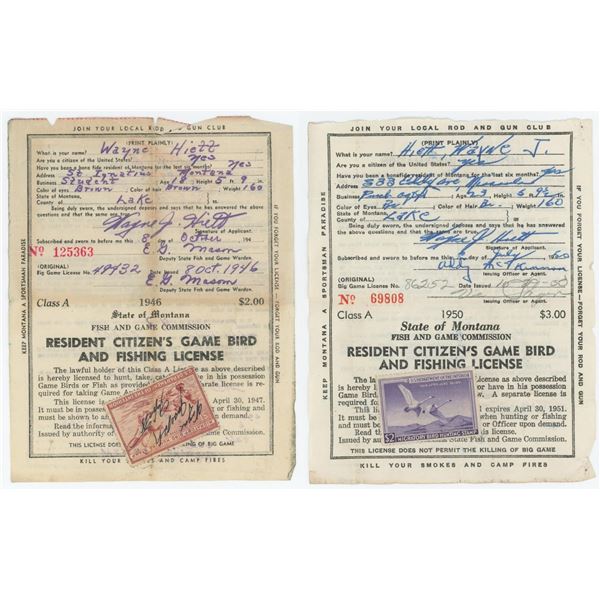 JOIN YOUR LOCAL ROD GUN CLUB
(PRINT PLAINLY)
What is your name? Wayne Hiett
Are you a citizen of the United States? Yes
Have you been a bona fide resident of Montana for the last six months? Yes
Address St. Ignatius Montana
Business Student Age 18 Height 5 9 in.
Color of eyes Brown Color of Hair Brown Weight 160
State of Montana,
County of Lake
Being duly sworn, the undersigned deposes and says that he has answered the above questions and that the same are true.
Wayne J. Hiett
Signature of Applicant.
Subscribed and sworn to before me this 8 day of October 194
E G Mason
Deputy State Fish and Game Warden.
No 125363
(ORIGINAL)
Big Game License No. 49932 Date Issued 8 Oct. 1946
E G Mason
Deputy State Fish and Game Warden.
Class A 1946 $2.00
State of Montana
FISH AND GAME COMMISSION
RESIDENT CITIZEN'S GAME BIRD
AND FISHING LICENSE
The lawful holder of this Class A License as above described
is hereby licensed to hunt, take,
Game Birds or Fish as provided
required for taking Game A
This license is April 30, 1947.
It must be in posses hunting or fishing
and must be exh upon demand.
Read the inform
Issued by authority of Game Commission.
THIS LICENSE DOES KILLING OF BIG GAME
KILL YOUR SMOKES AND CAMP FIRES
KEEP MONTANA A SPORTSMAN PARADISE
IF YOU FORGET YOUR LICENSE—FORGET YOUR ROD AND GUN
JOIN YOUR LOCAL ROD AND GUN CLUB
(PRINT PLAINLY)
What is your name? Hiett, Wayne J.
Are you a citizen of the United States? Yes
Have you been a bona fide resident of Montana for the last six months? Yes
Address 333
Business Age 23 Height 5-9½ in.
Color of Eyes Br Color of Hair Br. Weight 160
State of Montana,
County of Lake
Being duly sworn, the undersigned deposes and says that he has answered the above questions and that the same are true.
Wayne J Hiett
Signature of Applicant.
Subscribed and sworn to before me this day of July 1950
Issuing Officer or Agent.
(ORIGINAL)
Big Game License No. 86252 Date Issued
No 69808
Issuing Officer or Agent.
Class A 1950 $3.00
State of Montana
FISH AND GAME COMMISSION
RESIDENT CITIZEN'S GAME BIRD
AND FISHING LICENSE
The lawful holder of this Class A License as above described
is hereby license
Game Birds or F
required for taki
This license expires April 30, 1951.
It must be in when hunting or fishing
and must be or Officer upon demand.
Read the in
Issued by authority of the State Fish and Game Commission.
U.S. DEPARTMENT OF THE INTERIOR
$2 MIGRATORY BIRD HUNTING STAMP
THIS LICENSE DOES NOT PERMIT THE KILLING OF BIG GAME
KILL YOUR SMOKES AND CAMP FIRES
KEEP MONTANA A SPORTSMAN PARADISE
IF YOU FORGET YOUR LICENSE—FORGET YOUR ROD AND GUN